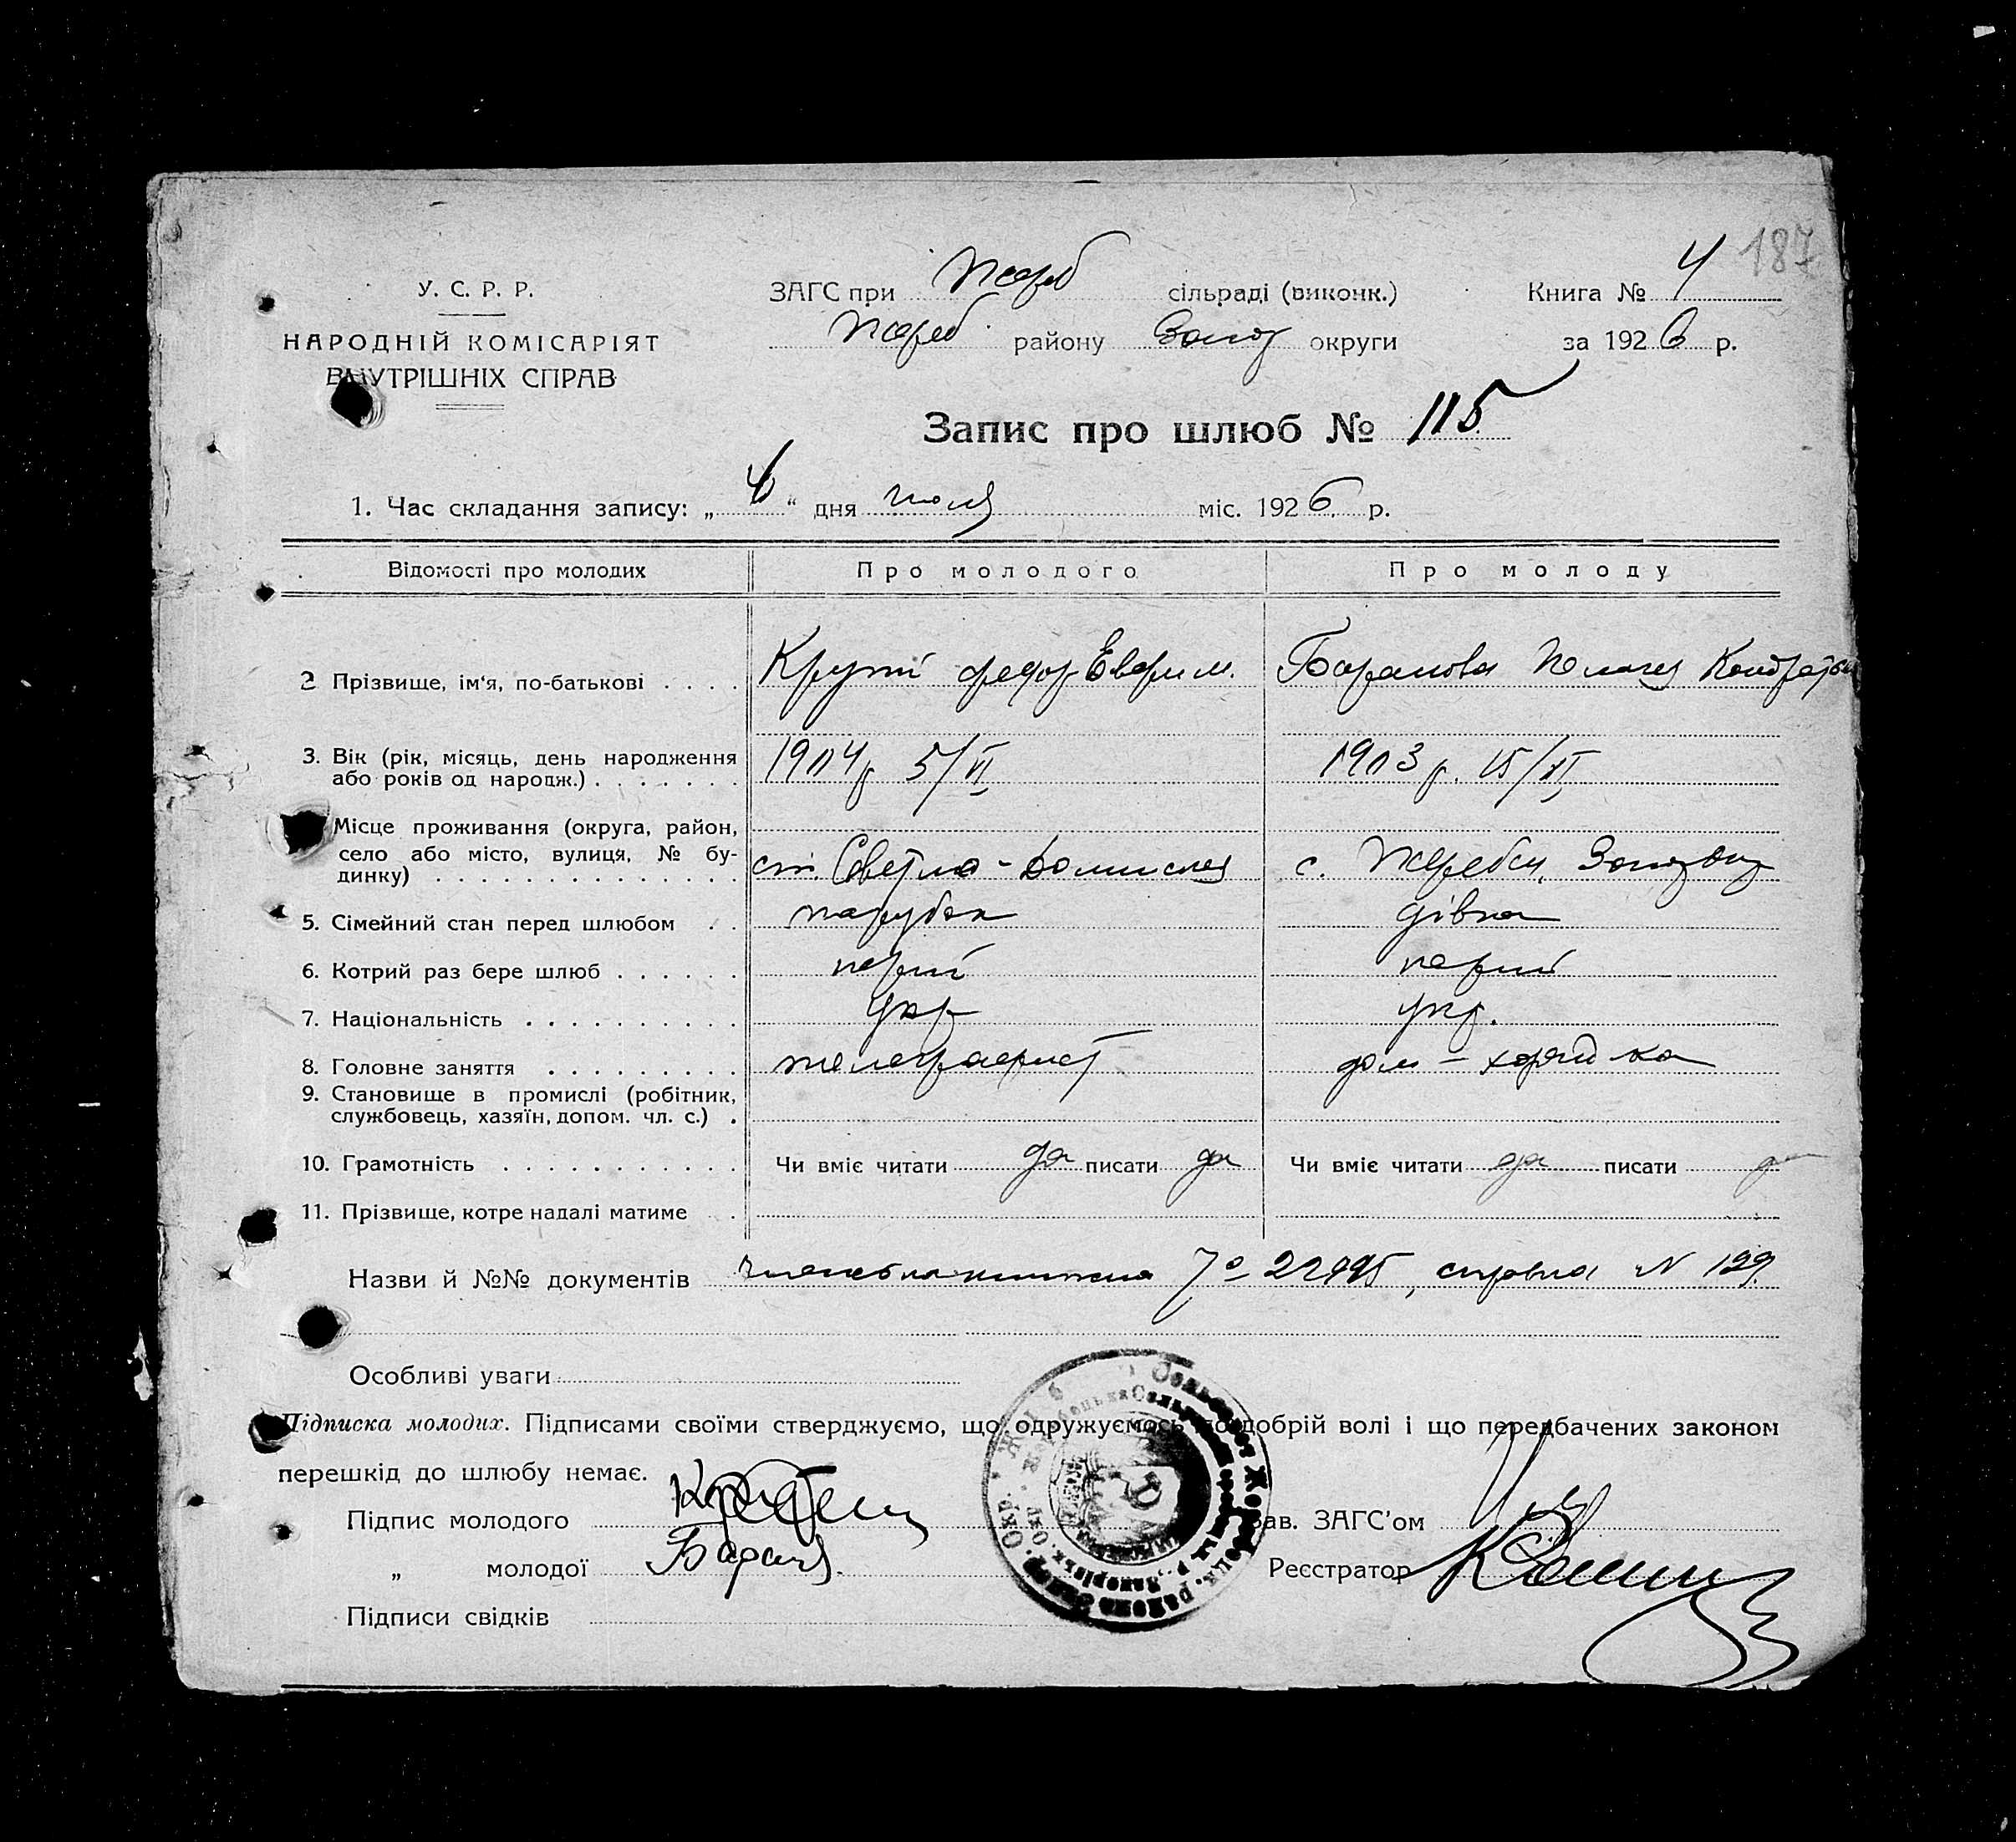 187
У. С. Р. Р.
НАРОДНІЙ КОМІСАРІЯТ
ВНУТРІШНІХ СПРАВ
ЗАГС при Жереб сільраді (виконк.)
Жереб району Запор округи
Книга № 4
за 1926 р.
Запис про шлюб № 115
1. Час складання запису: „ “ дня июля міс. 1926 р.
Відомості про молодих Про молодого Про молоду
2 Прізвище, ім‘я, по-батькові . . . . федор Ефрим. Баранова Кондратьев
3. Вік (рік, місяць, день народження
або років од народж.) . . . . . . . 1904 р 5/VI 1903 р. 15/XI
Місце проживання (округа, район,
село або місто, вулиця, № бу-
динку) . . . . . . . . . . . . . . ст. с. Жеребец, Запор окр
5. Сімейний стан перед шлюбом . . парубок дівка
6. Котрий раз бере шлюб . . . . . . перш перш
7. Національність . . . . . . . . . . Укр укр.
8. Головне заняття . . . . . . . . . телеграфист дом-хозяйка
9. Становище в промислі (робітник,
службовець, хазяїн, допом. чл. с.) .
10. Грамотність . . . . . . . . . . . Чи вміє читати да писати да Чи вміє читати да писати
11. Прізвище, котре надалі матиме .
Назви й №№ документів справка № 199
Особливі уваги
Підписка молодих. Підписами своїми стверджуємо, що одружуємось по добрій волі і що передбачених законом
перешкід до шлюбу немає.
Підпис молодого
Зав. ЗАГС’ом
„ молодої
Реєстратор
Підписи свідків